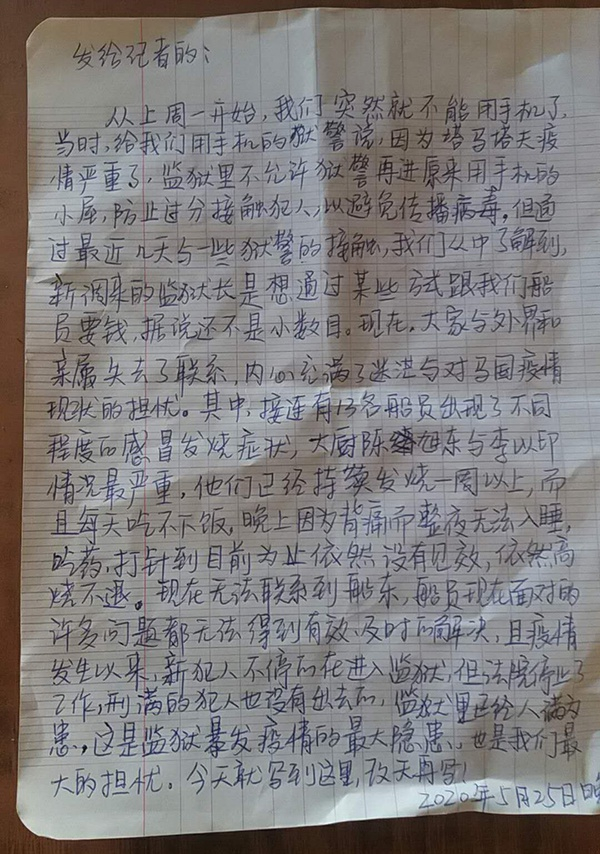 发给记者的:
从上周一开始,我们突然就不能用手机了,
当时,给我们用手机的狱警说,因为塔马塔夫疫
情严重了,监狱里不允许狱警再进原来用手机的
小屋,防止过分接触犯人,以避免传播病毒。但通
过最近几天与一些狱警的接触,我们从中了解到,
新调来的监狱长是想通过某些方式跟我们船
员要钱,据说还不是小数目。现在,大家与外界和
亲属失去了联系,内心充满了迷茫与对马国疫情
现状的担忧。其中,接连有13名船员出现了不同
程度的感冒发烧症状,大厨陈旭东与李以印
情况最严重,他们已经持续发烧一周以上,而
且每天吃不下饭,晚上因为背痛而整夜无法入睡,
吃药,打针到目前为止依然没有见效,依然高
烧不退。现在无法联系到船东,船员现在面对的
许多问题都无法得到有效、及时的解决,且疫情
发生以来,新犯人不停的在进入监狱,但法院停止了
工作,刑满的犯人也没有出去的,监狱里已经人满为
患,这是监狱暴发疫情的最大隐患,也是我们最
大的担忧。今天就写到这里,改天再写!
2020年5月25日晚